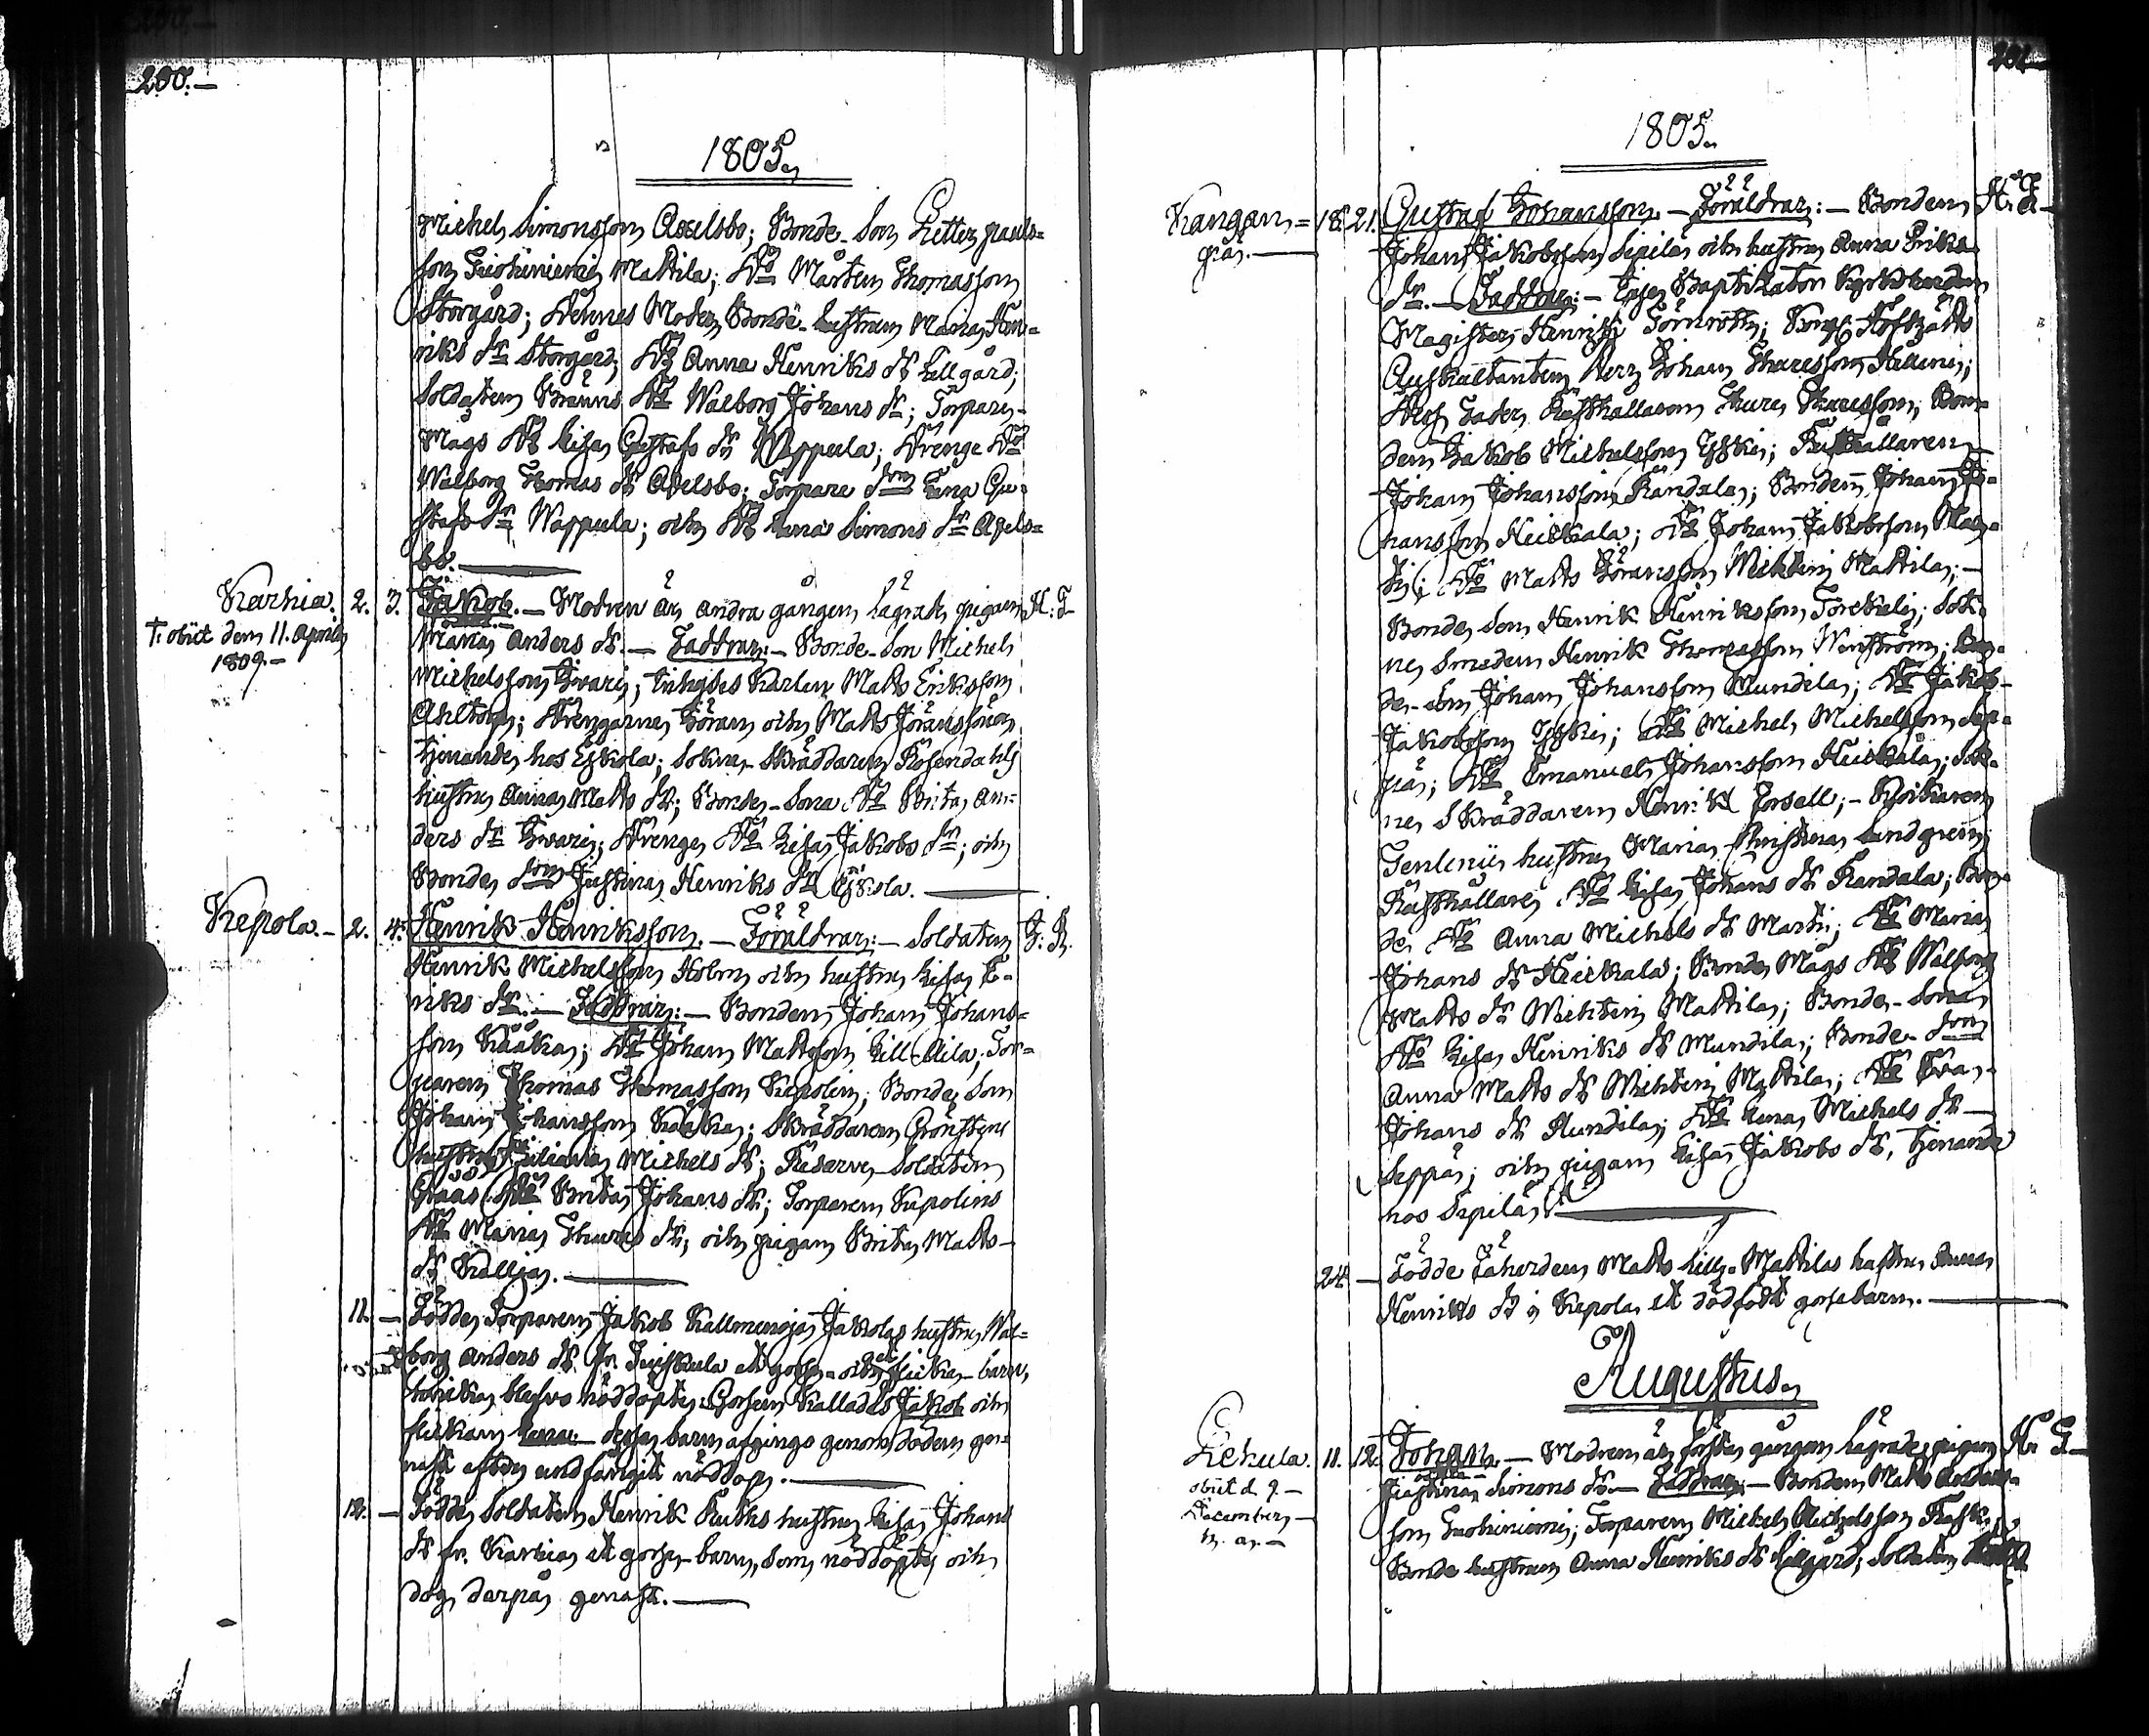 200.—
1805.
Michel Simonsson Axelsbo; Bonde-Son Petter Pauls-
son Mattila; Do Mårten Thomasson
Storgård; Dennes Moder, Bonde-hustrun Maria Hen-
riks dr Storgård; Do Anna Henriks dr Lillgård;
Soldaten Bränns Do Walborg Johans dr; Torpare-
Mågs Do Lisa Gustafs dr Wappula; Drenge Do
Walborg Thomas dr Axelsbo; Torpare Lena Gu-
stafs dr Wappula; och Do Lena Simons dr Axels-
bo.—
Karhia. 2. 3. Jakob.— Modren är andra gången lägrade pigan H. T.
† obiit den 11. April
1809.—
Maria Anders dr.— Faddrar:— Bonde-Son Michel
Michelsson Matts Eriksson
Drengarne Göran och Matts Göranssöner
tjenande hos Eskola; Sokne-Skräddaren Rosendahls
hustru Anna Matts dr; Bonde-Sona Do Brita An-
ders dr Drenge Do Lisa Jakobs dr; och
Bonde Justina Henriks dr Eskola.—
Kepola.— 2. 4. Henrik Henriksson.— Föräldrar:— Soldaten
Henrik Michelsson Holm och hustru Lisa E-
riks dr.— Faddrar:— Bonden Johan Johans-
son Kååka; Do Johan Mattsson Lill-Eila; Tor-
paren Thomas Thomasson Kepolin; Bonde Son
Johan Johansson Kååka; Skräddaren Grönstens
hustru Juliana Michels dr; Reserve-Soldaten
Do Brita Johans dr; Torparen Kepolins
Do Maria Thures dr; och pigan Brita Matts
dr Källja.—
11.— Födde Torparen Jakob Kallmenoja Jakolas hustru Wal-
borg Anders dr fr. ett gosse- och ett flicke-barn,
hvilka blefvo nöddöpte. Gossen kallades Jakob och
flickan Lena:— dessa barn afgingo genom döden ge-
nast efter undfångit nöddop.—
12.— Födde Soldaten Henrik Ruths hustru Lisa Johans
dr fr. Karhia ett gosse-barn, som nöddöptes och
dog derpå genast.—
201
1805.
Kangan= 18. 21. Gustaf Johansson.— Föräldrar:— Bonden H. T.—
pää.—
Johan Jakobsson Sipilä och hustru Anna Eriks
dr.— Faddrar:— Kyrkoherden
Magister Henrik Hofrätts
Auskultanten Herr Johan Thuresson Hellenii;
Dess Fader Rusthållaren Thure Thuresson; Bon-
den Jakob Michelsson Yskki; Rusthållaren
Johan Johansson Randala; Bonden Johan Jo-
hansson Heickala; Do Johan Jakobsson Mar-
ti; Do Matts Göransson Wichteri Mattila;—
Bonde Son Henrik Henriksson Sok-
ne Smeden Henrik Thomasson Wenström; Bon-
de-Son Johan Johansson Mundila; Do Jakob
Jakobsson Yskki; Do Michel Michelsson Sep-
pä; Do Emanuel Johansson Heickala; Sok-
ne Skräddaren Henrik Forsell;—
hustru Maria Christina Lindgren;
Rusthållare Do Lisa Johans dr Randala; Bon-
de Do Anna Michels dr Marti; Do Maria
Johans dr Heickala; Bonde Mågs Do Walborg
Matts dr Wichteri Mattila; Bonde-Sona
Do Lisa Henriks dr Mundila; Bonde-
Anna Matts dr Wichteri Mattila; Do Eva
Johans dr Mundila; Do Lena Michels dr
Seppä; och pigan Lisa Jakobs dr, tjenande
hos Sipilä.—
24.— Födde Matts Lill-Mattilas hustru Anna
Henriks dr i Kepola ett dödfödt gossebarn.—
Augustus.
11. 12. Johan.— Modren är första gången lägrade pigan
obiit d. 9.—
December
h. a.—
Justina Simons dr.— Faddrar:— Bonden Matts Anders-
son Torparen Michel Michelsson
Bonde hustrun Anna Henriks dr Lillgård; Soldaten